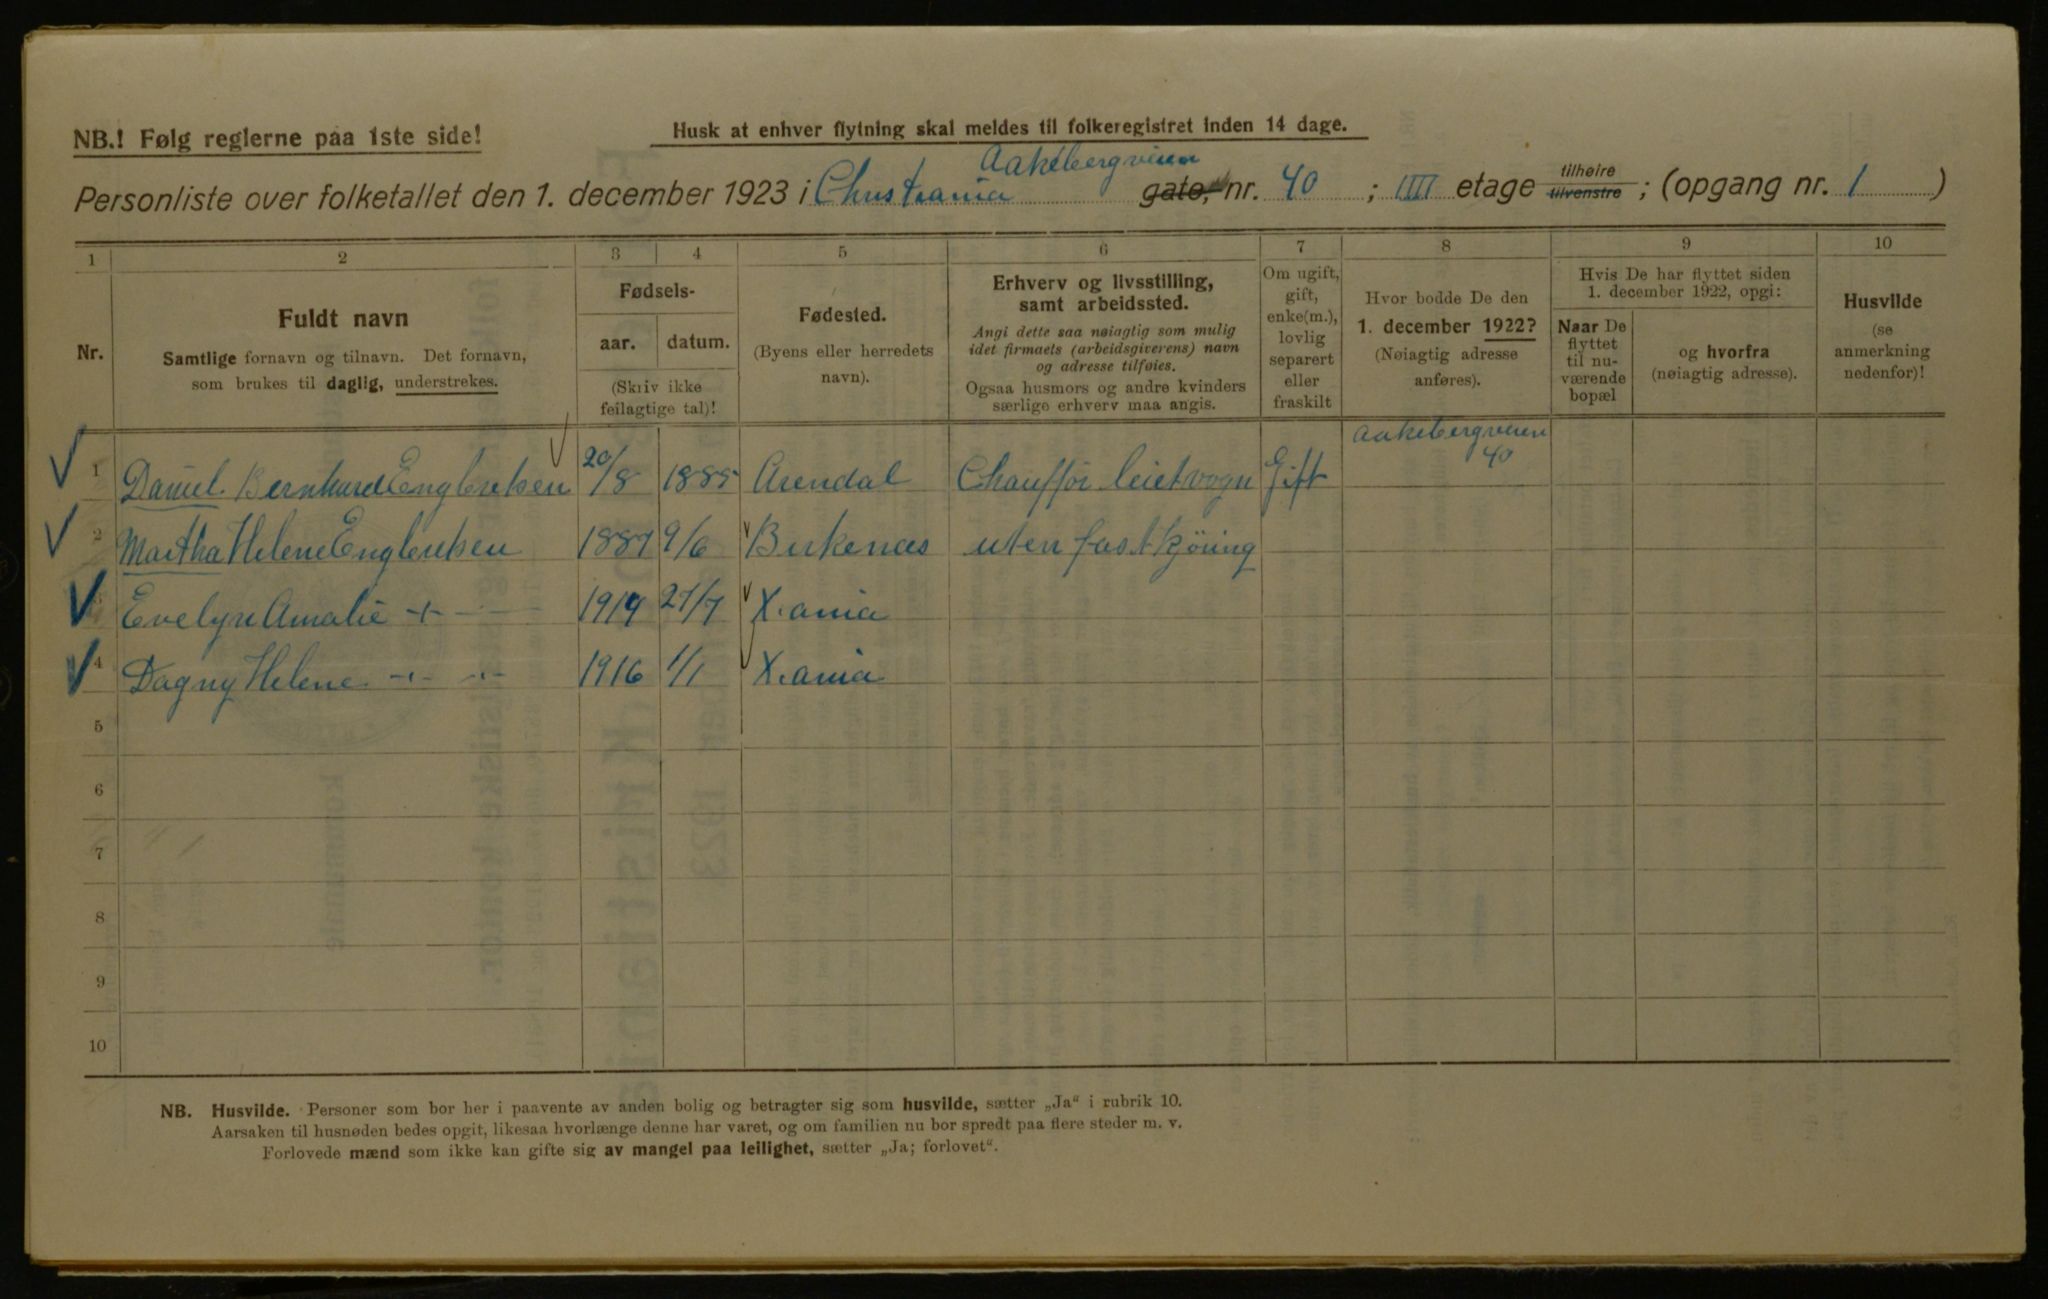 NB.! Følg reglerne paa 1ste side!
Husk at enhver flytning skal meldes til folkeregistret inden 14 dage.
Aakebergveien
Personliste over folketallet den 1. december 1923 i Christiania gate, nr. 40 ; IIII etage tilhøire tilvenstre ; (opgang nr. 1 )
1 2 3 4 5 6 7 8 9 10
Nr.
Fuldt navn
Samtlige fornavn og tilnavn. Det fornavn,
som brukes til daglig, understrekes.
Fødsels-
aar. datum.
(Skriv ikke
feilagtige tal)!
Fødested.
(Byens eller herredets
navn).
Erhverv og livsstilling,
samt arbeidssted.
Angi dette saa nøiagtig som mulig
idet firmaets (arbeidsgiverens) navn
og adresse tilføies.
Ogsaa husmors og andre kvinders
særlige erhverv maa angis.
Om ugift,
gift,
enke(m.),
lovlig
separert
eller
fraskilt
Hvor bodde De den
1. december 1922?
(Nøiagtig adresse
anføres).
Hvis De har flyttet siden
1. december 1922, opgi:
Naar De
flyttet
til nu-
værende
bopæl
og hvorfra
(nøiagtig adresse).
Husvilde
(se
anmerkning
nedenfor)!
1 Daniel Bernhard Englebtsen 20/8 1885 Arendal Chauffør leietvogn Gift Aakebergveien 40
2 Martha Helene Englebtsen 1887 9/6 Birkenæs uten fast kjöring
3 Evelyn Amalie -"- 1914 27/7 X.ania
4 Dagny Helene -"- -"- 1916 1/1 X.ania
5
6
7
8
9
10
NB. Husvilde. Personer som bor her i paavente av anden bolig og betragter sig som husvilde, sætter „Ja" i rubrik 10.
Aarsaken til husnøden bedes opgit, likesaa hvorlænge denne har varet, og om familien nu bor spredt paa flere steder m. v.
Forlovede mænd som ikke kan gifte sig av mangel paa leilighet, sætter „Ja; forlovet".